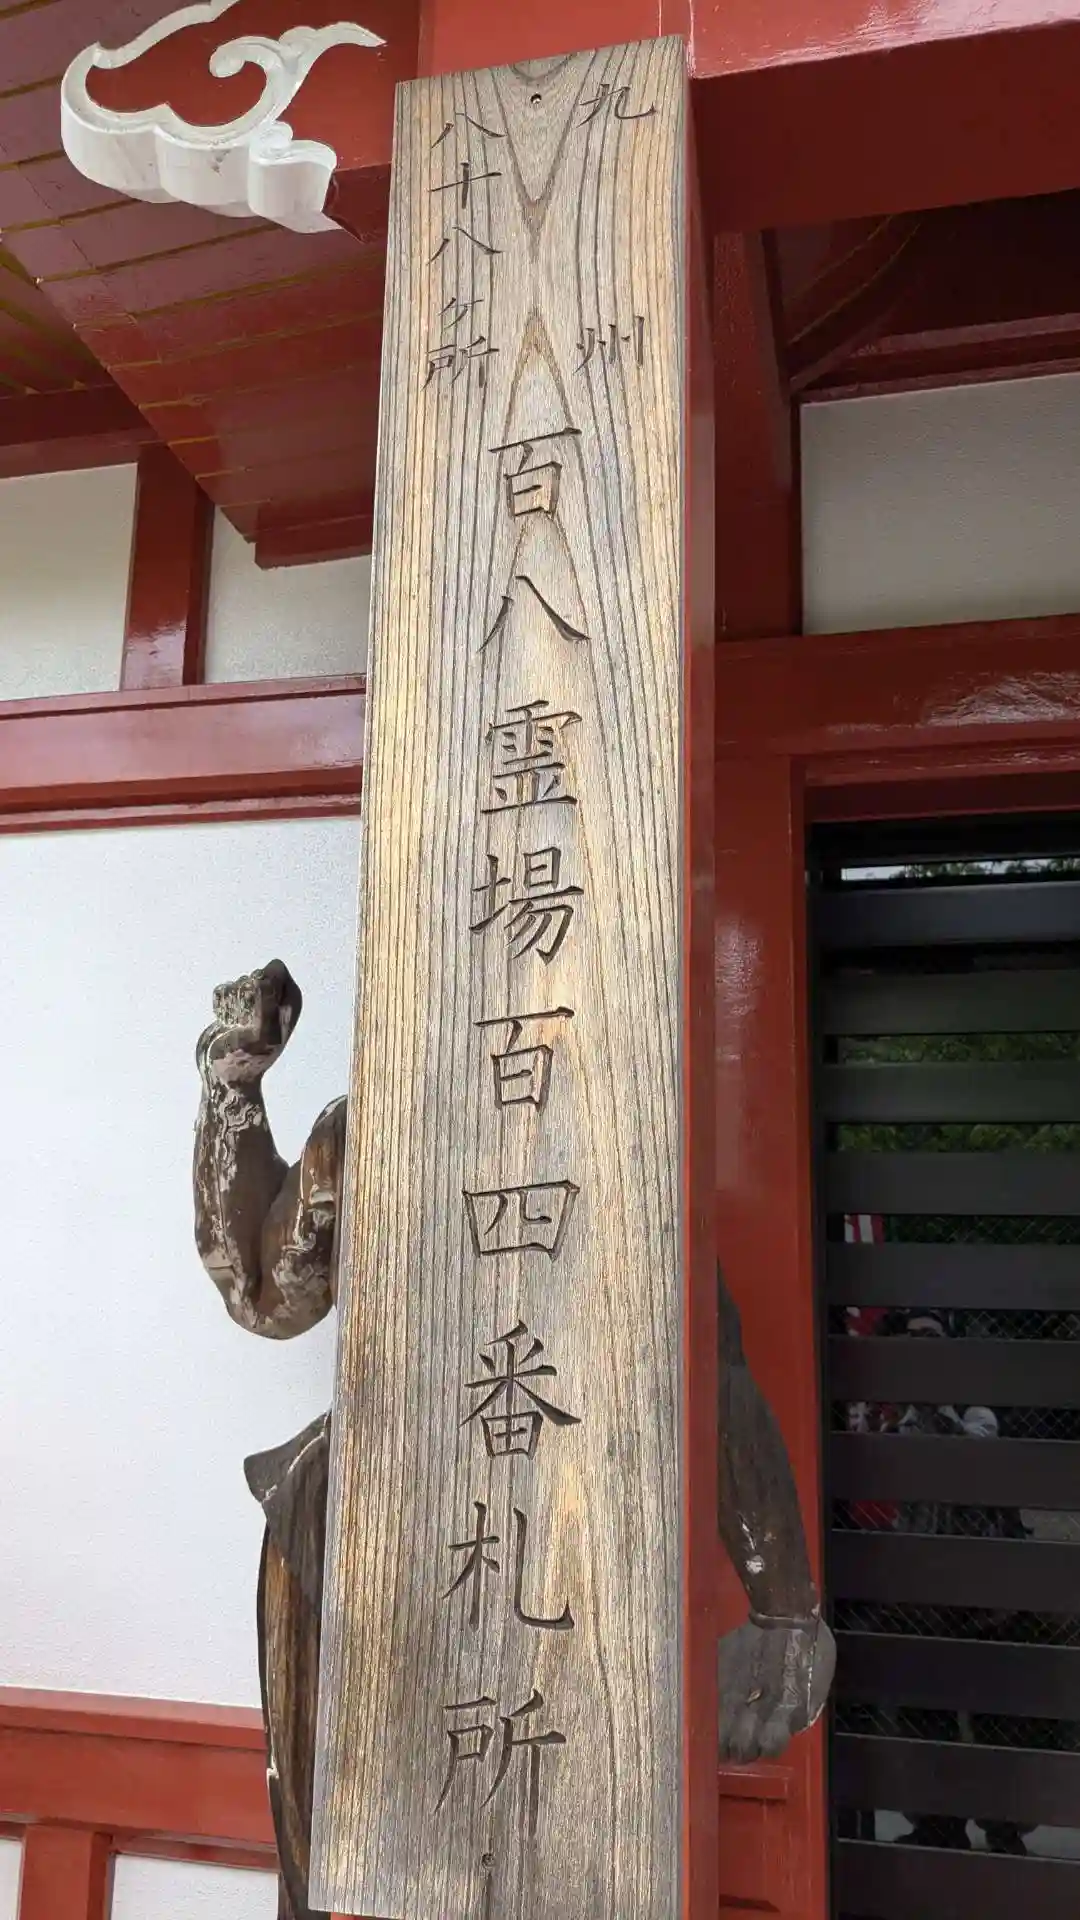 九州
八十八ヶ所
百八霊場百四番札所